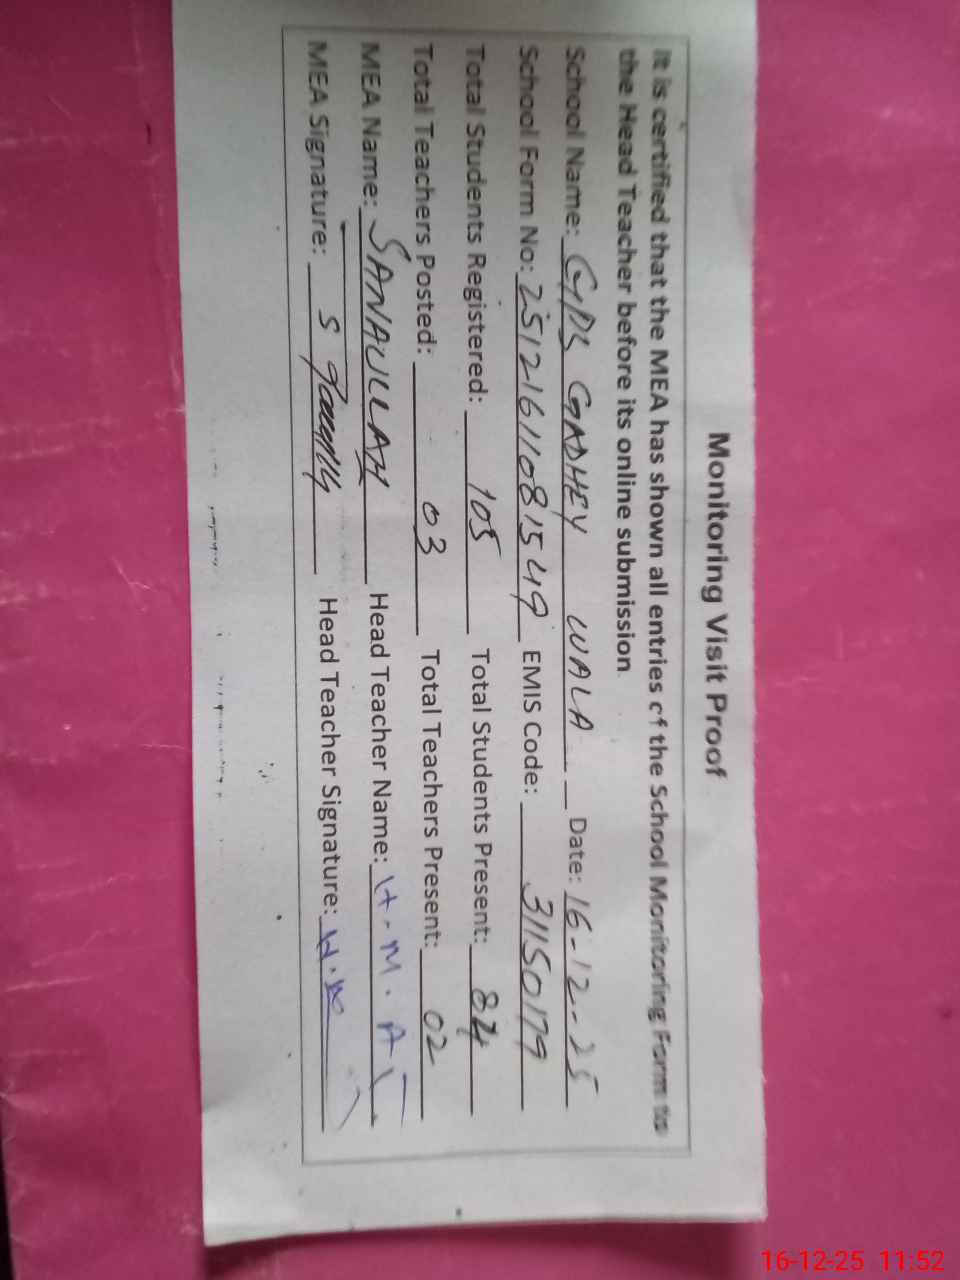 Monitoring Visit Proof
It is certified that the MEA has shown all entries of the School Monitoring Form to
the Head Teacher before its online submission
School Name: GPS GADHEY WALA Date: 16-12-25
School Form No: 25121611081549 EMIS Code: 31150179
Total Students Registered: 105 Total Students Present: 84
Total Teachers Posted: 03 Total Teachers Present: 02
MEA Name: SANAULLAH Head Teacher Name: H.M. A
MEA Signature: Head Teacher Signature:
16-12-25 11:52